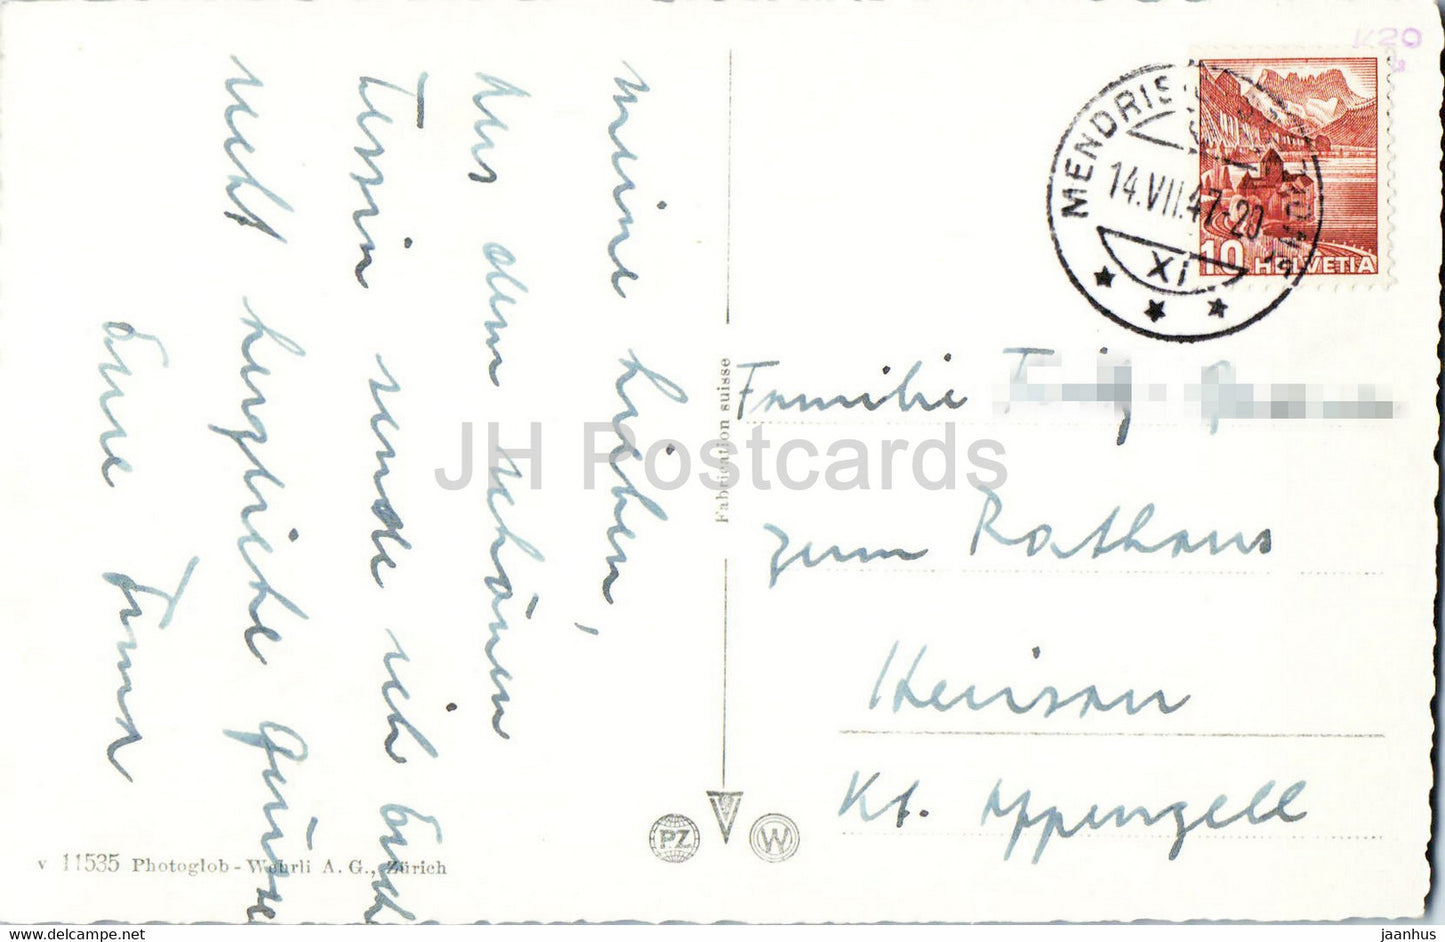 Meine Lieben,
Aus dem schönen
Tessin sende ich Euch
recht herzliche Grüsse
Eure Emma
v 11535 Photoglob-Wehrli A. G., Zürich
Fabrication suisse
PZ
W
JH Postcards
K20
MENDRISIO
14.VII.47-20
XI
10 HELVETIA
Familie
zum Rathaus
Herisau
Kt. Appenzell
jaanhus